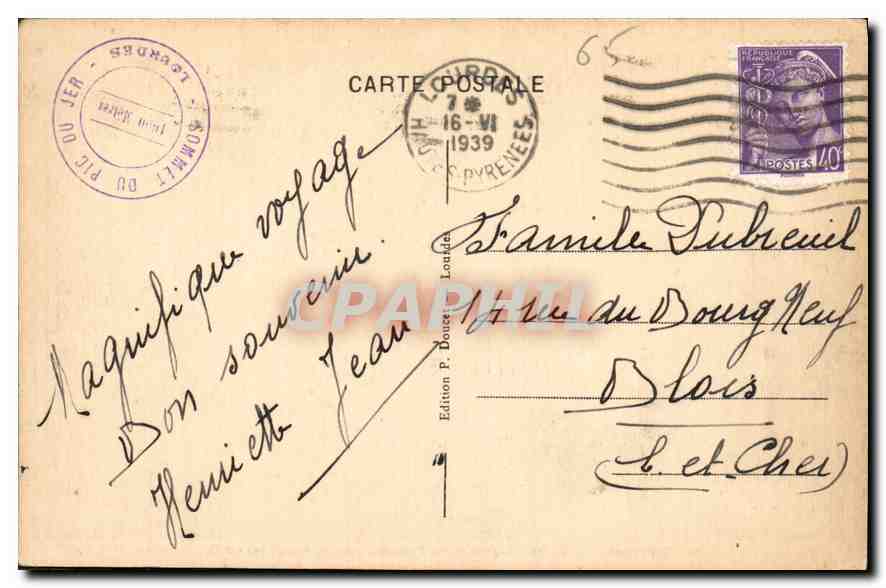 CARTE POSTALE
SOMMET DU PIC DU JER - LOURDES
1000 Mètres
LOURDES
7 *
16-VI
1939
HTES PYRENEES
65
REPUBLIQUE
FRANCAISE
POSTES
40c
Magnifique voyage
Bon souvenir.
Henriette Jean
Edition P. Doucet Lourdes
Famille Dubreuil
17 rue du Bourg Neuf
Blois
(L. et Cher)
CPAPHIL